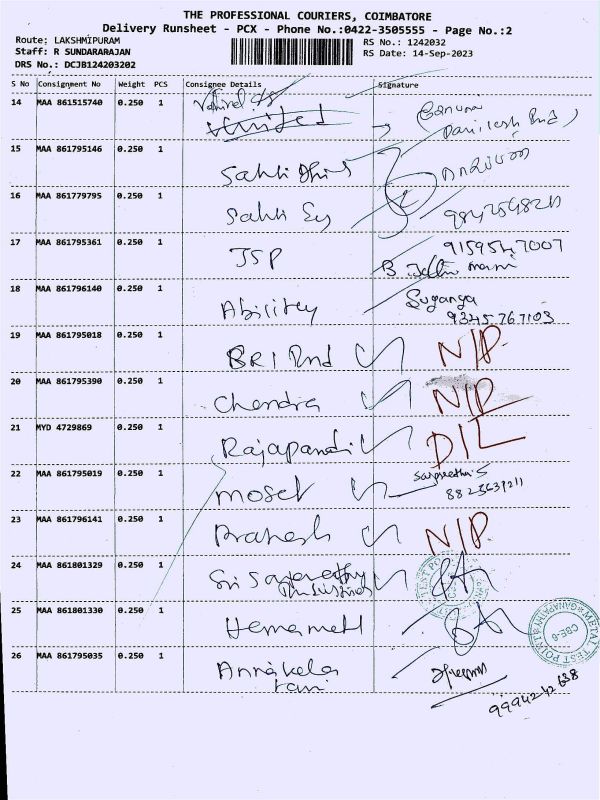 THE PROFESSIONAL COURIERS, COIMBATORE
Delivery Runsheet - PCX - Phone No.:0422-3505555 - Page No.:2
Route: LAKSHMIPURAM
Staff: R SUNDARARAJAN
DRS No.: DCJB124203202
RS No.: 1242032
RS Date: 14-Sep-2023
S No Consignment No Weight PCS Consignee Details Signature
14 MAA 861515740 0.250 1
15 MAA 861795146 0.250 1 Sakthi
16 MAA 861779795 0.250 1 Sakthi
17 MAA 861795361 0.250 1 JSP 9159547007
18 MAA 861796140 0.250 1 Abilitey Suganga
9345767103
19 MAA 861795018 0.250 1 BRI Ind N/P.
20 MAA 861795390 0.250 1 Chendra N/P
21 MYD 4729869 0.250 1 Rajapandi D/L
22 MAA 861795019 0.250 1 moset
23 MAA 861796141 0.250 1 Prakash N/P.
24 MAA 861801329 0.250 1 Sri
25 MAA 861801330 0.250 1 Hemamett
METAL TEST POINT
CBE-6
26 MAA 861795035 0.250 1 Annakela
9994242638